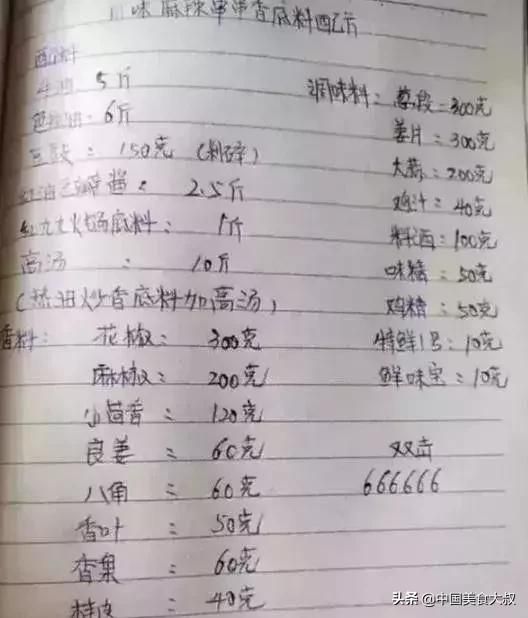 川味麻辣串串香底料配方
配料
牛油 5斤
色拉油: 6斤
豆豉: 150克 (剁碎)
红油豆瓣酱: 2.5斤
红九九火锅底料: 1斤
高汤 : 10斤
(热油炒香底料加高汤)
香料: 花椒: 300克
麻椒: 200克
小茴香: 120克
良姜 : 60克
八角 : 60克
香叶 : 50克
香果 : 60克
桂皮 : 40克
调味料: 葱段:300克
姜片:300克
大蒜:200克
鸡汁:40克
料酒:100克
味精:50克
鸡精:50克
特鲜1号:10克
鲜味宝:10克
双击
666666
头条 @中国美食大叔